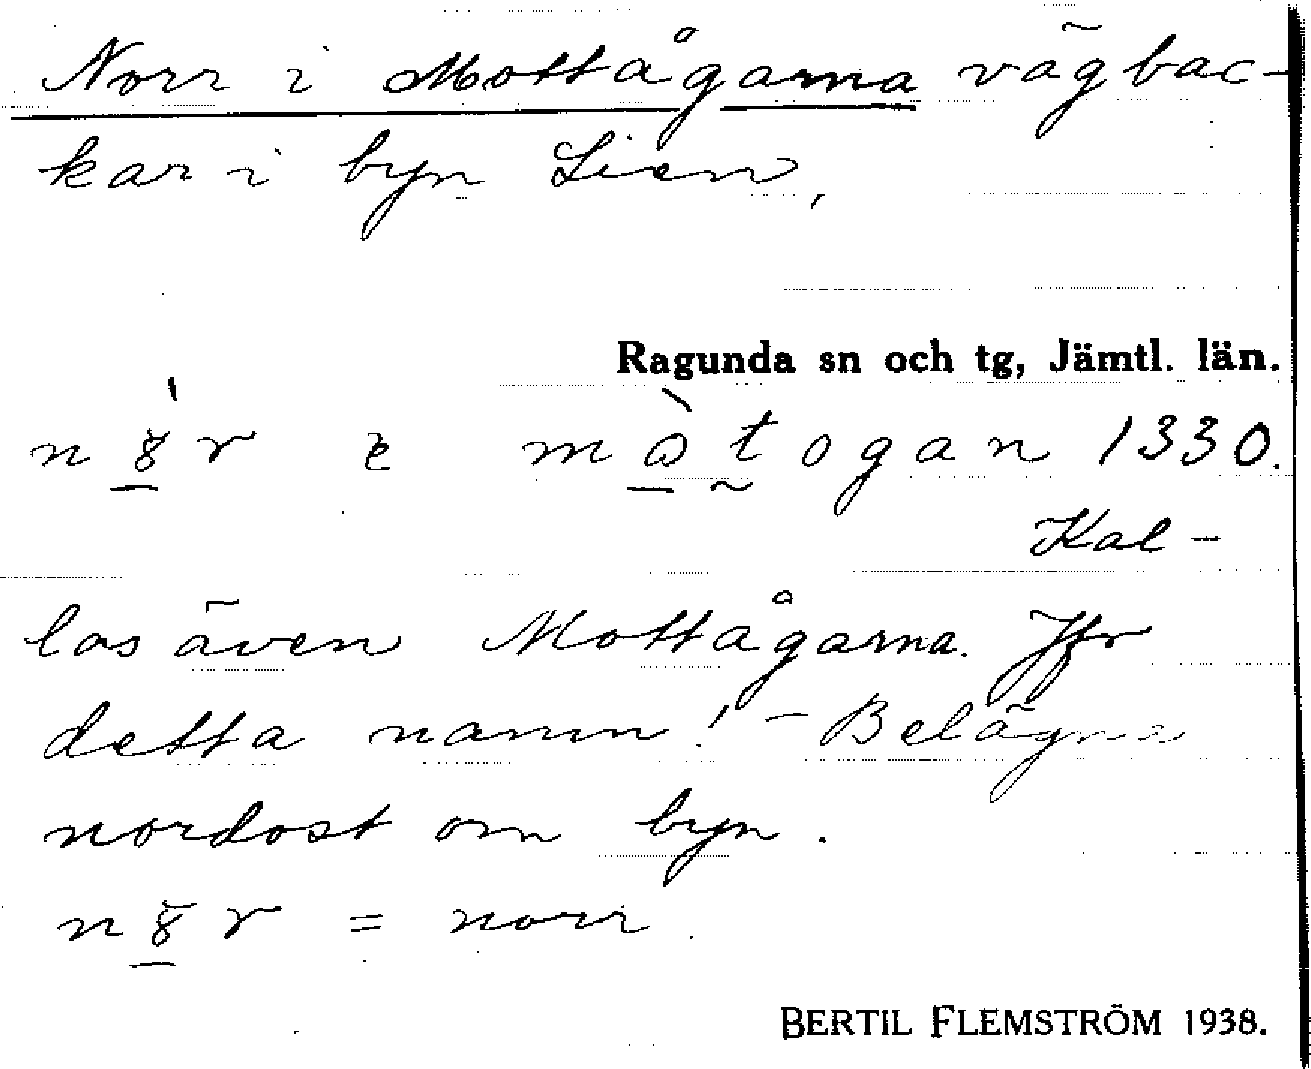 Norr i Mottågarna vägbac-
kar i byn Lien,
Ragunda sn och tg, Jämtl. län.
n 8 r e m å t o g a n 1330.
Kal-
las även Mottågarna. Jfr
detta namn! - Belägna
nordost om byn.
n 8 r = norr.
BERTIL FLEMSTRÖM 1938.